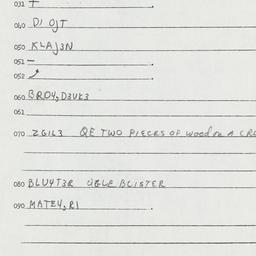 031 T
040 DI OJT
050 KLAJ3N
051 –
052
060 BRO4,D3VK3
061
070 2GIL3 QE TWO PIECES OF wood on A CRO
080 BLUYT3R UGLE BLISTER
090 MATE4,RI